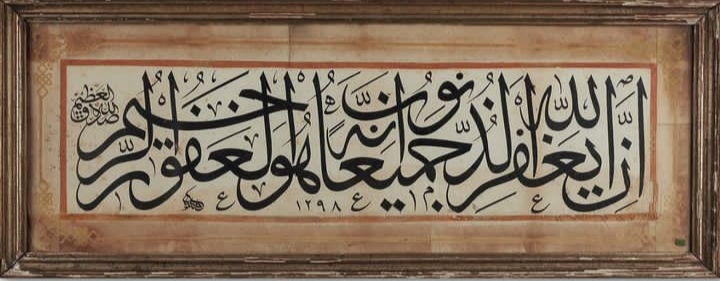 إن الله يغفر الذنوب جميعا إنه هو الغفور الرحيم
صدق الله العظيم
١٢٩٨